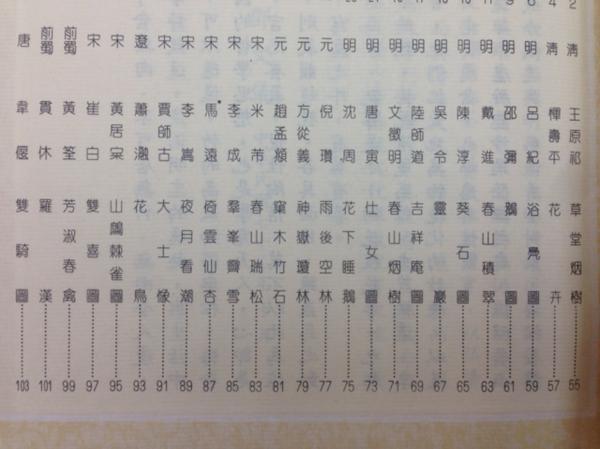 清 王原祁 草堂烟樹 55
清 惲壽平 花卉 57
明 呂紀 浴鳧圖 59
明 邵彌 鵝圖 61
明 戴進 春山積翠 63
明 陳淳 葵石圖 65
明 吳令 靈巖 67
明 陸師道 吉祥庵圖 69
明 文徵明 春山烟樹 71
明 唐寅 仕女圖 73
明 沈周 花下睡鵝 75
元 倪瓚 雨後空林 77
元 方從義 神嶽瓊林 79
元 趙孟頫 窠木竹石 81
宋 米芾 春山瑞松 83
宋 李成 羣峯霽雪 85
宋 馬遠 倚雲仙杏 87
宋 李嵩 夜月看潮 89
宋 賈師古 大士像 91
遼 蕭瀜 花鳥 93
宋 黃居寀 山鷓棘雀圖 95
宋 崔白 雙喜圖 97
前蜀 黃筌 芳淑春禽 99
前蜀 貫休 羅漢 101
唐 韋偃 雙騎圖 103